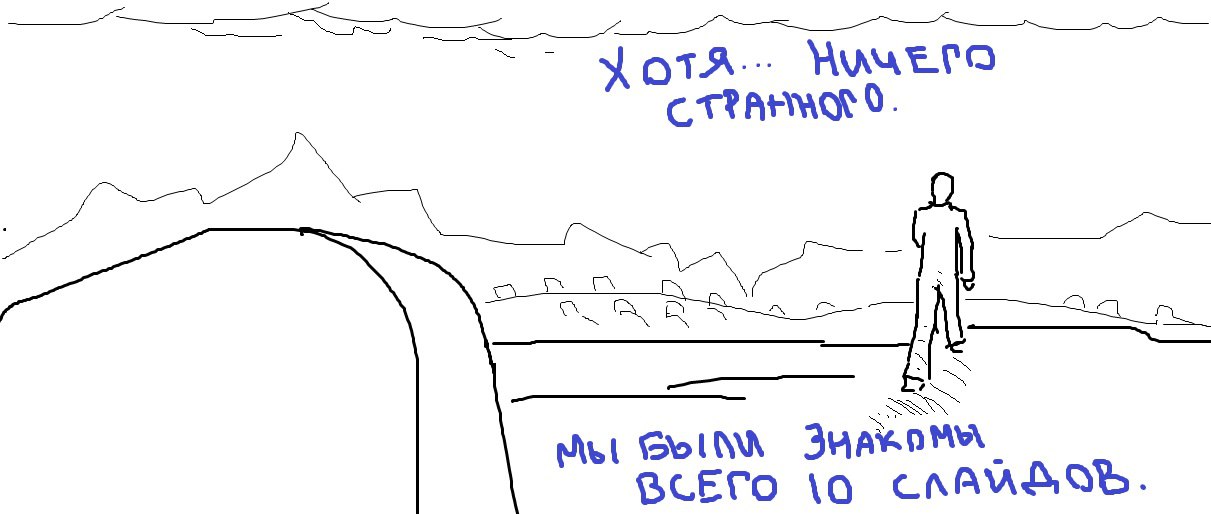 ХОТЯ... НИЧЕГО
СТРАННОГО.
МЫ БЫЛИ ЗНАКОМЫ
ВСЕГО 10 СЛАЙДОВ.